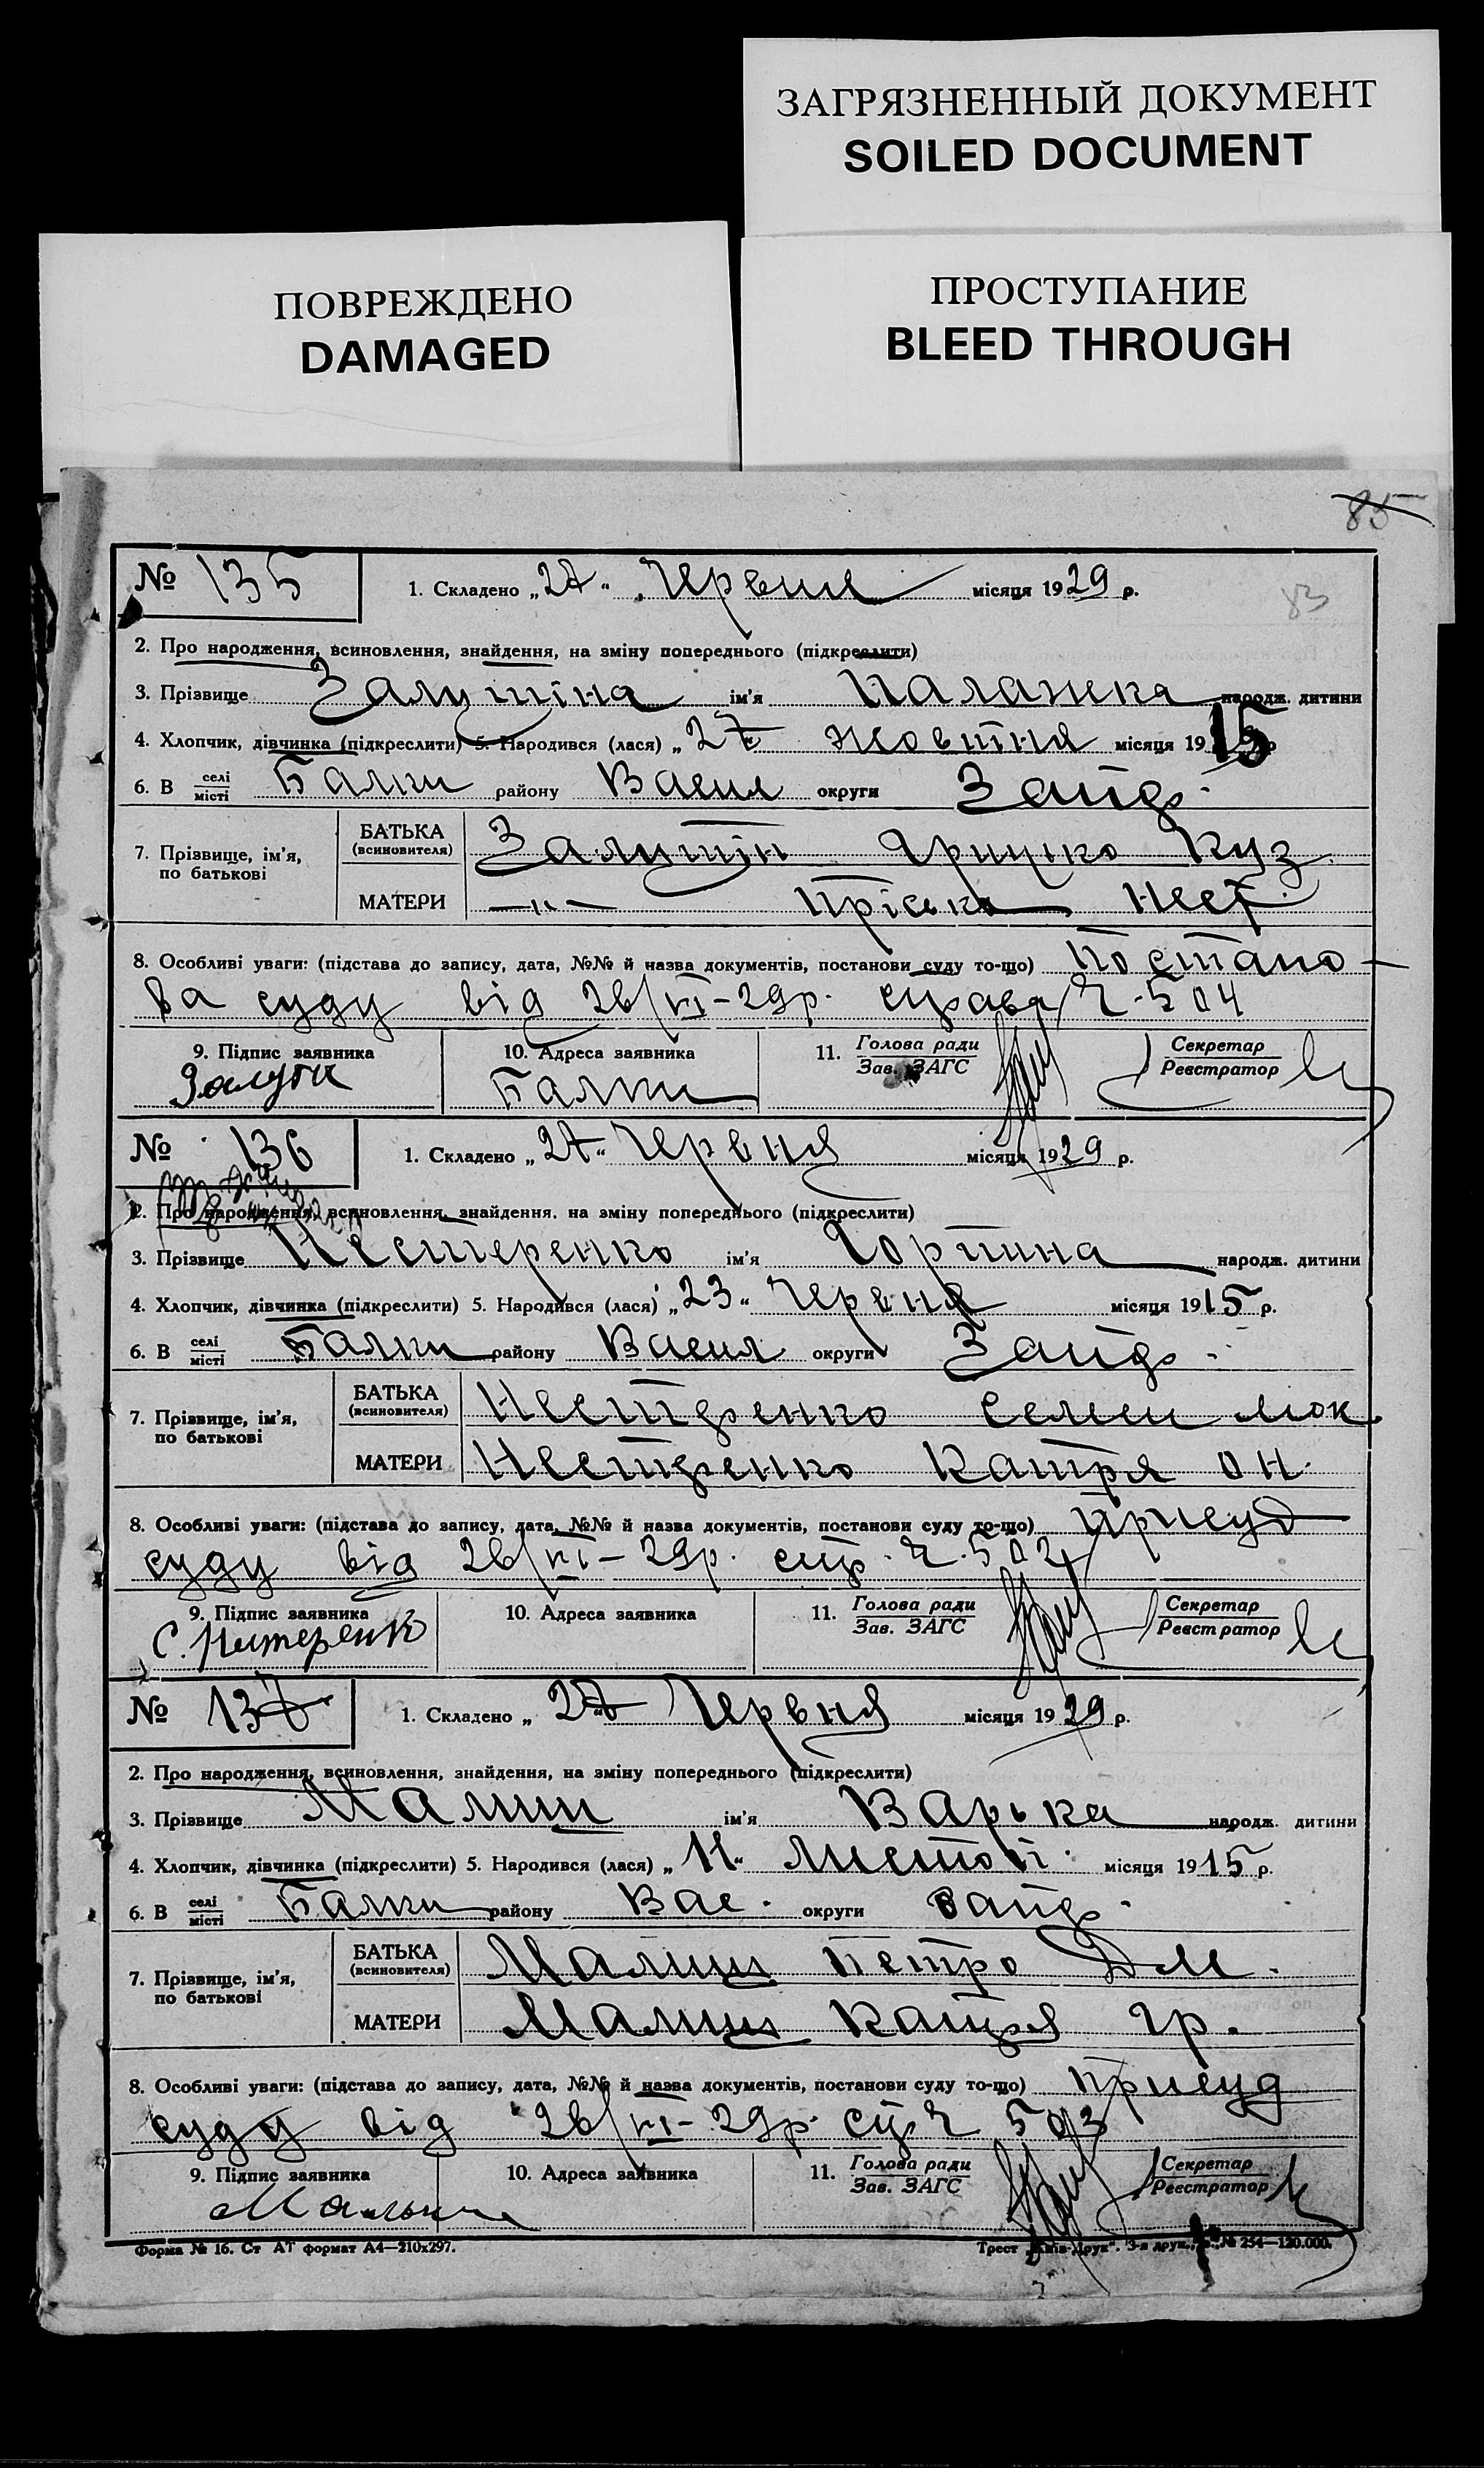 ЗАГРЯЗНЕННЫЙ ДОКУМЕНТ
SOILED DOCUMENT
ПОВРЕЖДЕНО
DAMAGED
ПРОСТУПАНИЕ
BLEED THROUGH
85
83
№ 135 1. Складено „27“ Червня місяця 1929 р.
2. Про народження, всиновлення, знайдення, на зміну попереднього (підкреслити)
3. Прізвище Залутіна ім'я Палажка народж. дитини
4. Хлопчик, дівчинка (підкреслити) 5. Народився (лася) „27 жовтня місяця 1915 р
6. В селі/місті Балки району Васил округи Запор.
7. Прізвище, ім'я, по батькові БАТЬКА (всиновителя) Залутін Грицько Куз.
МАТЕРИ —"— Пріська Нест.
8. Особливі уваги: (підстава до запису, дата, №№ й назва документів, постанови суду то-що) Постано-
ва суду від 26/VI-29р. справа Ч. 504
9. Підпис заявника 10. Адреса заявника 11. Голова ради/Зав. ЗАГС Секретар/Реєстратор
Балки
№ 136 1. Складено „27“ Червня місяця 1929 р.
2. Про народження, всиновлення, знайдення, на зміну попереднього (підкреслити)
3. Прізвище Нестеренко ім'я Горпина народж. дитини
4. Хлопчик, дівчинка (підкреслити) 5. Народився (лася) „23“ Червня місяця 1915 р.
6. В селі/місті Балки району Васил округи Запор.
7. Прізвище, ім'я, по батькові БАТЬКА (всиновителя) Нестеренко Семен Мок.
МАТЕРИ Нестеренко Катря Он.
8. Особливі уваги: (підстава до запису, дата, №№ й назва документів, постанови суду то-що) присуд
суду від 26/VI-29р. спр. Ч. 502
9. Підпис заявника 10. Адреса заявника 11. Голова ради/Зав. ЗАГС Секретар/Реєстратор
№ 137 1. Складено „27“ Червня місяця 1929 р.
2. Про народження, всиновлення, знайдення, на зміну попереднього (підкреслити)
3. Прізвище Малиш ім'я Варька народж. дитини
4. Хлопчик, дівчинка (підкреслити) 5. Народився (лася) „11“ Листоп. місяця 1915 р.
6. В селі/місті Балки району Вас. округи Запор.
7. Прізвище, ім'я, по батькові БАТЬКА (всиновителя) Малиш Петро Дм.
МАТЕРИ Малиш Катря Гр.
8. Особливі уваги: (підстава до запису, дата, №№ й назва документів, постанови суду то-що) присуд
суду від 26/VI-29р. спр Ч 503
9. Підпис заявника 10. Адреса заявника 11. Голова ради/Зав. ЗАГС Секретар/Реєстратор
Форма № 16. Ст АТ формат А4—210х297. Трест „Київ-Друк“. 3-я друк., № 254—120.000.